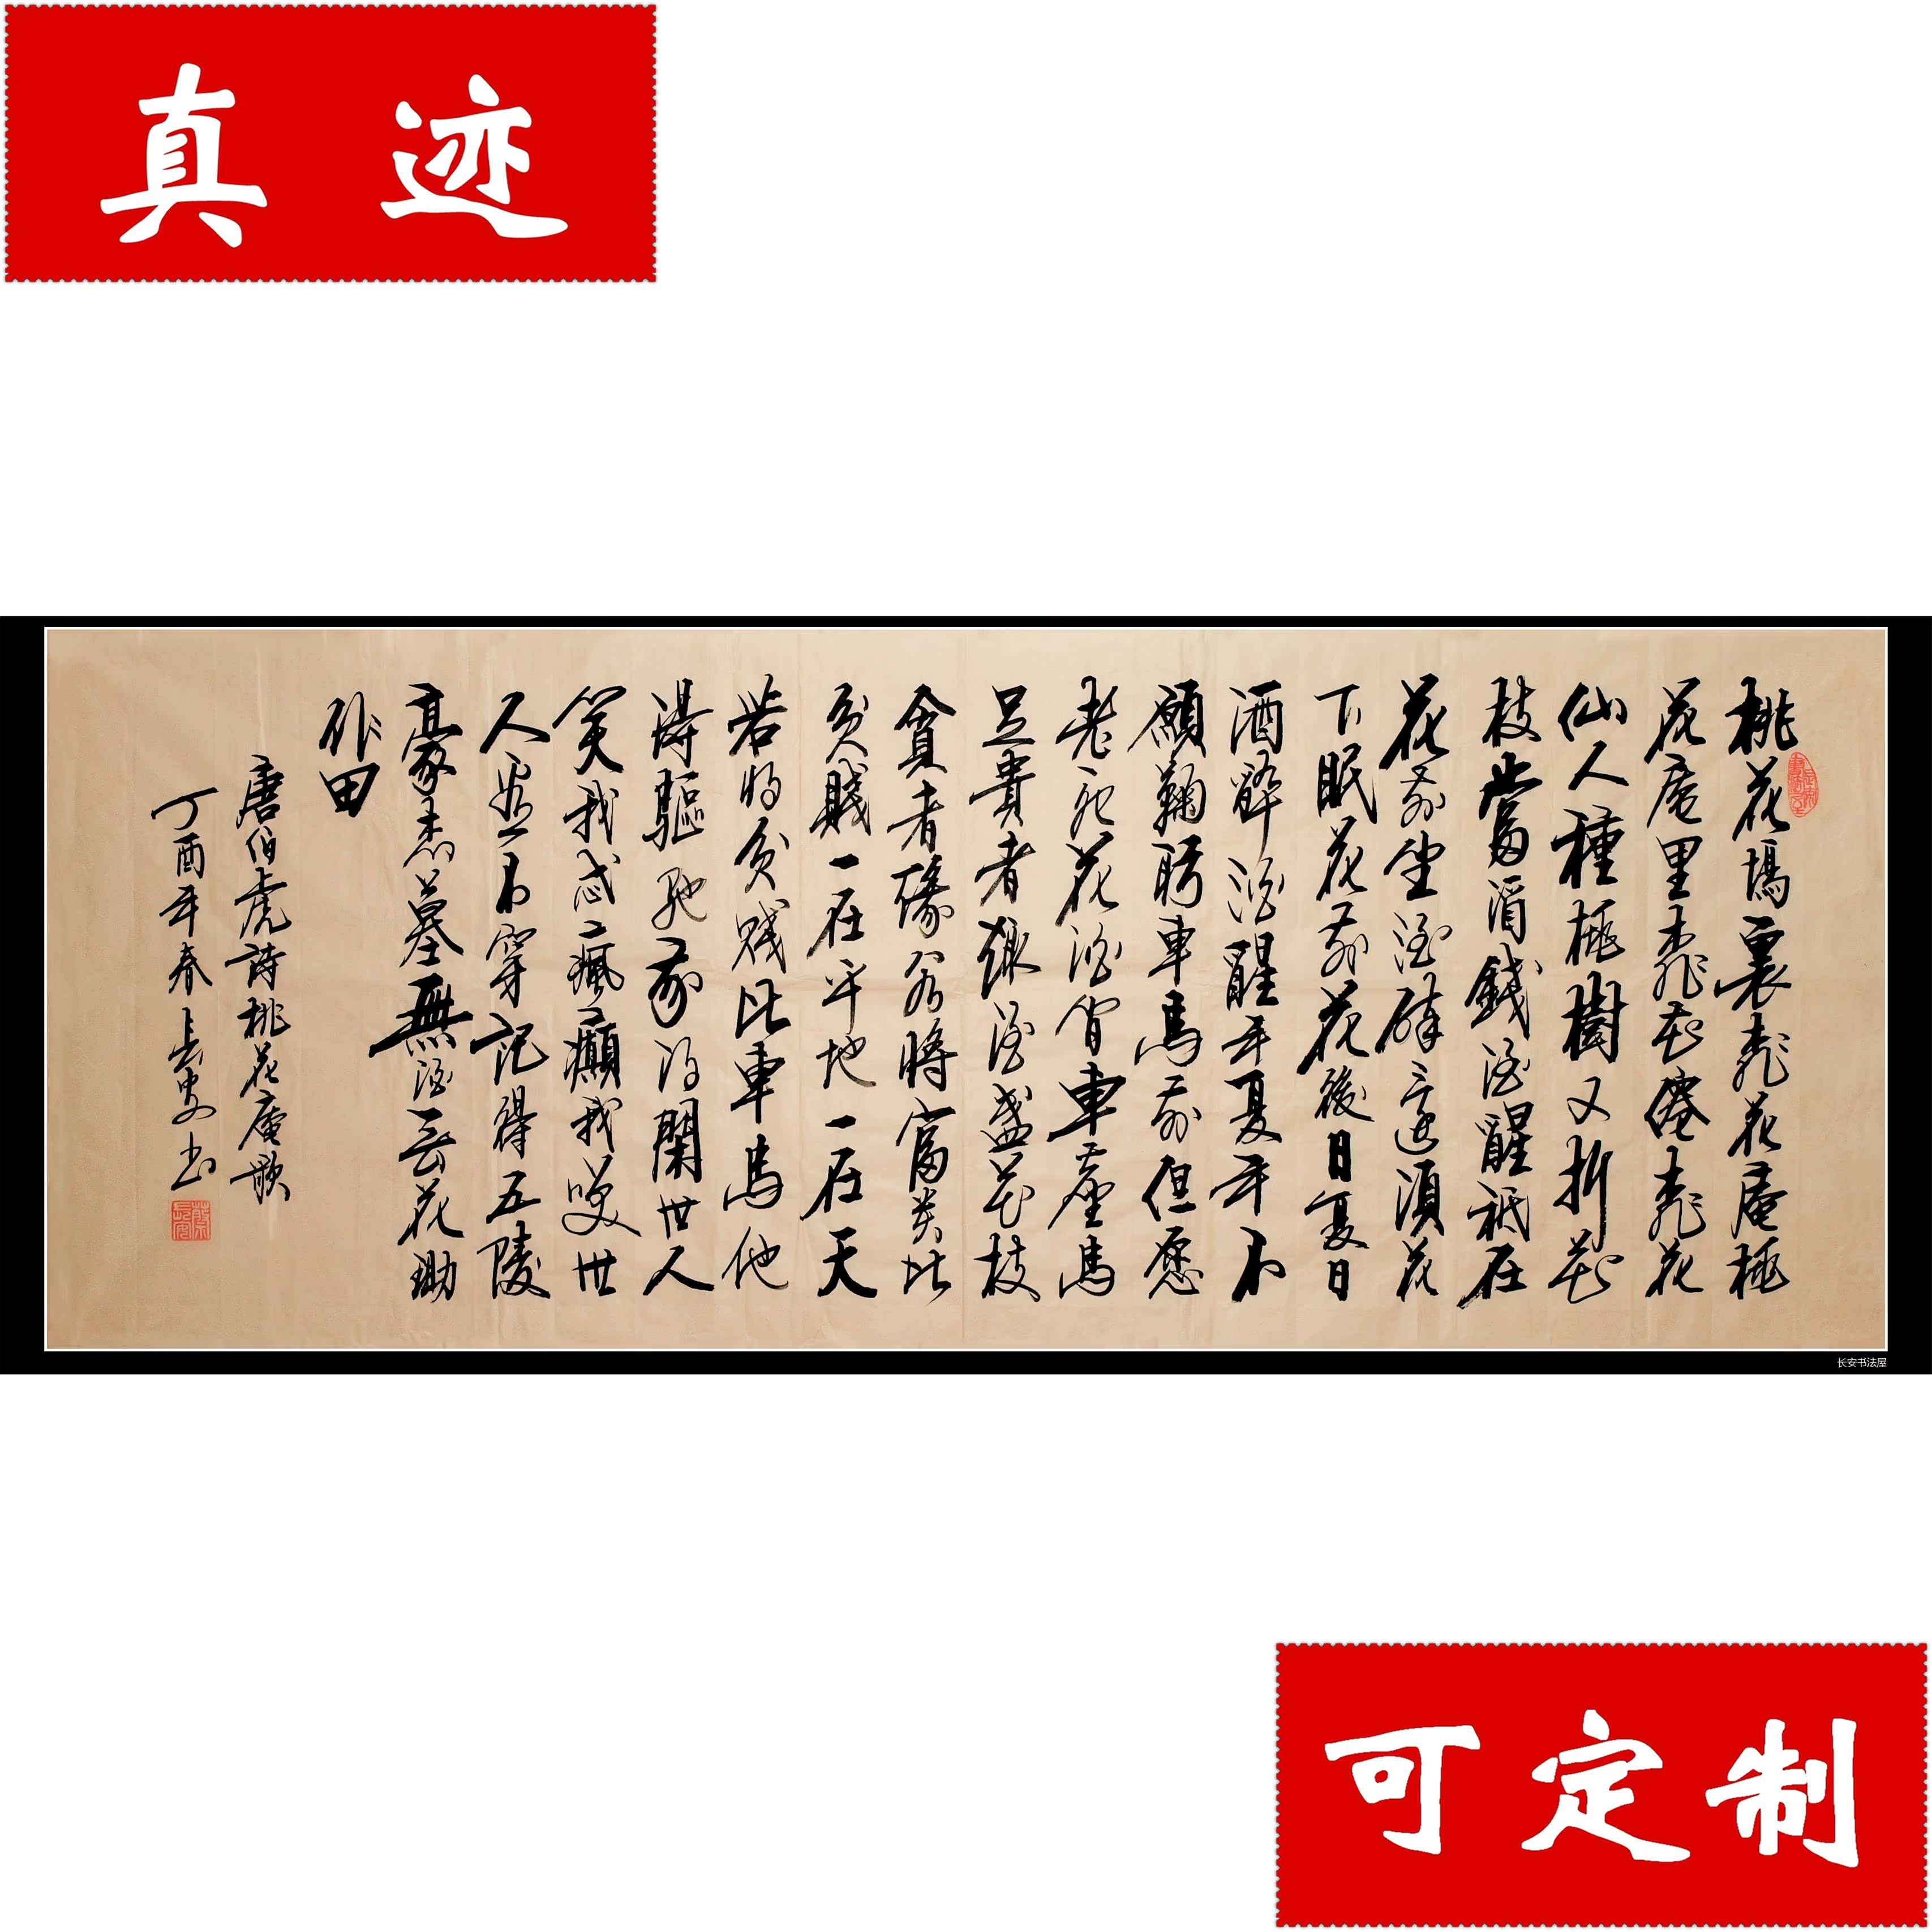 真迹
桃花塢裏桃花庵桃
花庵里桃花僊桃花
仙人種桃樹又折花
枝當酒錢酒醒衹在
花前坐酒醉還須花
下眠花前花後日复日
酒醉酒醒年复年不
願鞠躬車馬前但愿
老死花酒间車塵馬
足貴者趣酒盏花枝
貪者緣若將富贵比
贫賤一在平地一在天
若将贫贱比車馬他
得驅馳我得閑世人
笑我忒瘋癲我笑世
人看不穿記得五陵
豪杰墓無酒无花锄
作田
唐伯虎詩桃花庵歌
丁酉年春长安书
长安书法屋
可定制